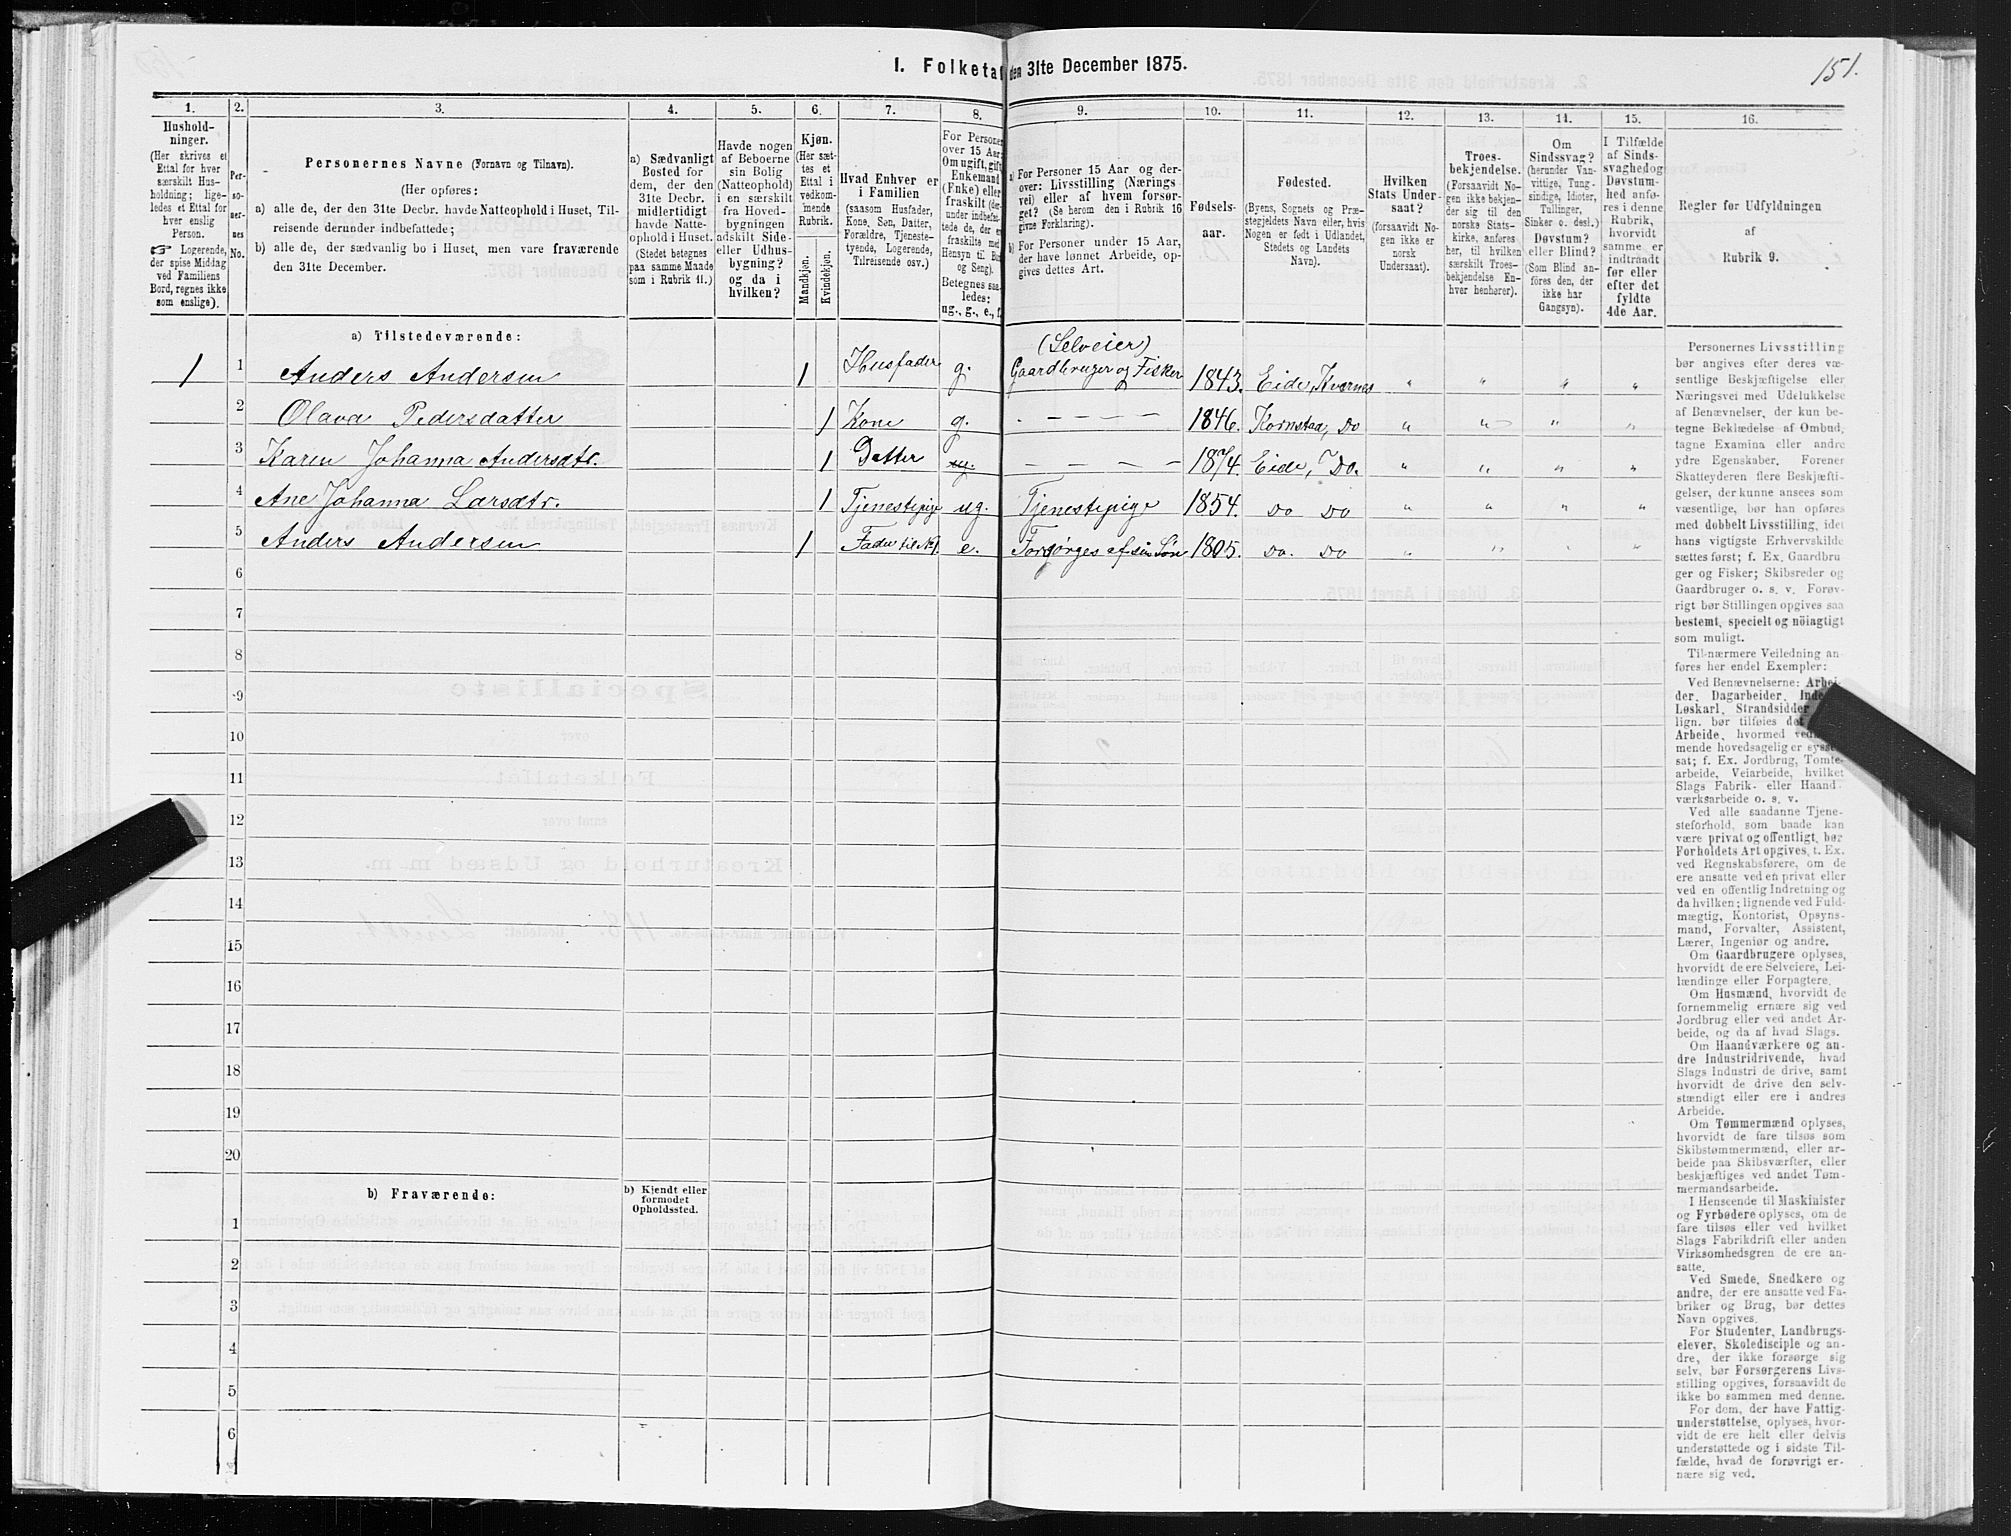 I. Folketal den 31te December 1875.
151.
1.
Hushold-
ninger.
(Her skrives et
Ettal for hver
særskilt Hus-
holdning; lige-
ledes et Ettal for
hver enslig
Person.
☞ Logerende,
der spise Middag
ved Familiens
Bord, regnes ikke
som enslige).
2.
Per-
so-
ner-
nes
No.
3.
Personernes Navne (Fornavn og Tilnavn).
(Her opføres:
a) alle de, der den 31te Decbr. havde Natteophold i Huset, Til-
reisende derunder indbefattede;
b) alle de, der sædvanlig bo i Huset, men vare fraværende
den 31te December.
4.
a) Sædvanligt
Bosted for
dem, der den
31te Decbr.
midlertidigt
havde Natte-
ophold i Huset.
(Stedet betegnes
paa samme Maade
som i Rubrik 11.)
5.
Havde nogen
af Beboerne
sin Bolig
(Natteophold)
i en særskilt
fra Hoved-
bygningen
adskilt Side-
eller Udhus-
bygning?
og da i
hvilken?
6.
Kjøn.
(Her sæt-
tes et
Ettal i
vedkom-
mende
Rubrik.
Mandkjøn.
Kvindekjøn.
7.
Hvad Enhver er
i Familien
(saasom Husfader,
Kone, Søn, Datter,
Forældre, Tjeneste-
tyende, Logerende,
Tilreisende osv.)
8.
For Personer
over 15 Aar:
Om ugift, gift,
Enkemand
(Enke) eller
fraskilt (der-
under indbefat-
tede de, der ere
fraskilte med
Hensyn til Bord
og Seng).
Betegnes saa-
ledes:
ug., g., e., f.
9.
a) For Personer 15 Aar og der-
over: Livsstilling (Nærings-
vei) eller af hvem forsør-
get? (Se herom den i Rubrik 16
givne Forklaring).
b) For Personer under 15 Aar,
der have lønnet Arbeide, op-
gives dettes Art.
10.
Fødsels-
aar.
11.
Fødested.
(Byens, Sognets og Præ-
stegjeldets Navn eller, hvis
Nogen er født i Udlandet,
Stedets og Landets
Navn).
12.
Hvilken
Stats Under-
saat?
(forsaavidt No-
gen ikke er
norsk
Undersaat).
13.
Troes-
bekjendelse.
(Forsaavidt No-
gen ikke bekjen-
der sig til den
norske Stats-
kirke, anføres
her, til hvilken
særskilt Troes-
bekjendelse En-
hver henhører).
14.
Om
Sindssvag?
(herunder Van-
vittige, Tung-
sindige, Idioter,
Tullinger,
Sinker o. desl.)
Døvstum?
eller Blind?
(Som Blind an-
føres den, der
ikke har
Gangsyn).
15.
I Tilfælde
af Sinds-
svaghed og
Døvstum-
hed anfø-
res i denne
Rubrik,
hvorvidt
samme er
indtraadt
før eller
efter det
fyldte
4de Aar.
16.
Regler for Udfyldningen
af
Rubrik 9.
a) Tilstedeværende:
(Selveier)
1 1 Anders Andersen 1 Husfader g. Gaardbruger og Fisker 1843. Eide, Kvernes " " " "
2 Olava Pedersdatter 1 Kone g. - - - - 1846. Kornstad, Do " " " "
3 Karen Johanna Andersdtr. 1 Datter ug. - - - - 1874. Eide, Do. " " " "
4 Ane Johanna Larsdtr. 1 Tjenestepige ug. Tjenestepige 1854. Do Do " " " "
5 Anders Andersen 1 Fader til No 1 e. Forsørges af sin Søn 1805. Do. Do " " " "
6
7
8
9
10
11
12
13
14
15
16
17
18
19
20
b) Fraværende:
b) Kjendt eller
formodet
Opholdssted.
1
2
3
4
5
6
Personernes Livsstilling
bør angives efter deres væ-
sentlige Beskjæftigelse eller
Næringsvei med Udelukkelse
af Benævnelser, der kun be-
tegne Beklædelse af Ombud,
tagne Examina eller andre
ydre Egenskaber. Forener
Skatteyderen flere Beskjæfti-
gelser, der kunne ansees som
væsentlige, bør han opføres
med dobbelt Livsstilling, idet
hans vigtigste Erhvervskilde
sættes først; f. Ex. Gaardbru-
ger og Fisker; Skibsreder og
Gaardbruger o. s. v. Forøv-
rigt bør Stillingen opgives saa
bestemt, specielt og nöiagtigt
som muligt.
Til nærmere Veiledning an-
føres her endel Exempler:
Ved Benævnelserne: Arbei-
der, Dagarbeider,
Løskarl, Strandsidder
lign. bør tilføies det
Arbeide, hvormed
mende hovedsagelig er
sat; f. Ex. Jordbrug, Tomte-
arbeide, Veiarbeide, hvilket
Slags Fabrik- eller Haand-
værksarbeide o. s. v.
Ved alle saadanne Tjene-
steforhold, som baade kan
være privat og offentligt, bør
Forholdets Art opgives, t. Ex.
ved Regnskabsførere, om de
ere ansatte ved en privat eller
ved en offentlig Indretning og
da hvilken; lignende ved Fuld-
mægtig, Kontorist, Opsyns-
mand, Forvalter, Assistent,
Lærer, Ingeniør og andre.
Om Gaardbrugere oplyses,
hvorvidt de ere Selveiere, Lei-
lændinge eller Forpagtere.
Om Husmænd, hvorvidt de
fornemmelig ernære sig ved
Jordbrug eller ved andet Ar-
beide, og da af hvad Slags.
Om Haandværkere og an-
dre Industridrivende, hvad
Slags Industri de drive, samt
hvorvidt de drive den selv-
stændigt eller ere i andres
Arbeide.
Om Tømmermænd oplyses,
hvorvidt de fare tilsøs som
Skibstømmermænd, eller ar-
beide paa Skibsværfter, eller
beskjæftiges ved andet Tøm-
mermandsarbeide.
I Henseende til Maskinister
og Fyrbødere oplyses, om de
fare tilsøs eller ved hvilket
Slags Fabrikdrift eller anden
Virksomhedsgren de ere an-
satte.
Ved Smede, Snedkere og
andre, der ere ansatte ved Fa-
briker og Brug, bør dettes
Navn opgives.
For Studenter, Landbrugs-
elever, Skoledisciple og an-
dre, der ikke forsørge sig
selv, bør Forsørgerens Livs-
stilling opgives, forsaavidt de
ikke bo sammen med denne.
For dem, der have Fattig-
understøttelse, oplyses, hvor-
vidt de ere helt eller delvis
understøttede og i sidste Til-
fælde, hvad de forøvrigt er-
nære sig ved.